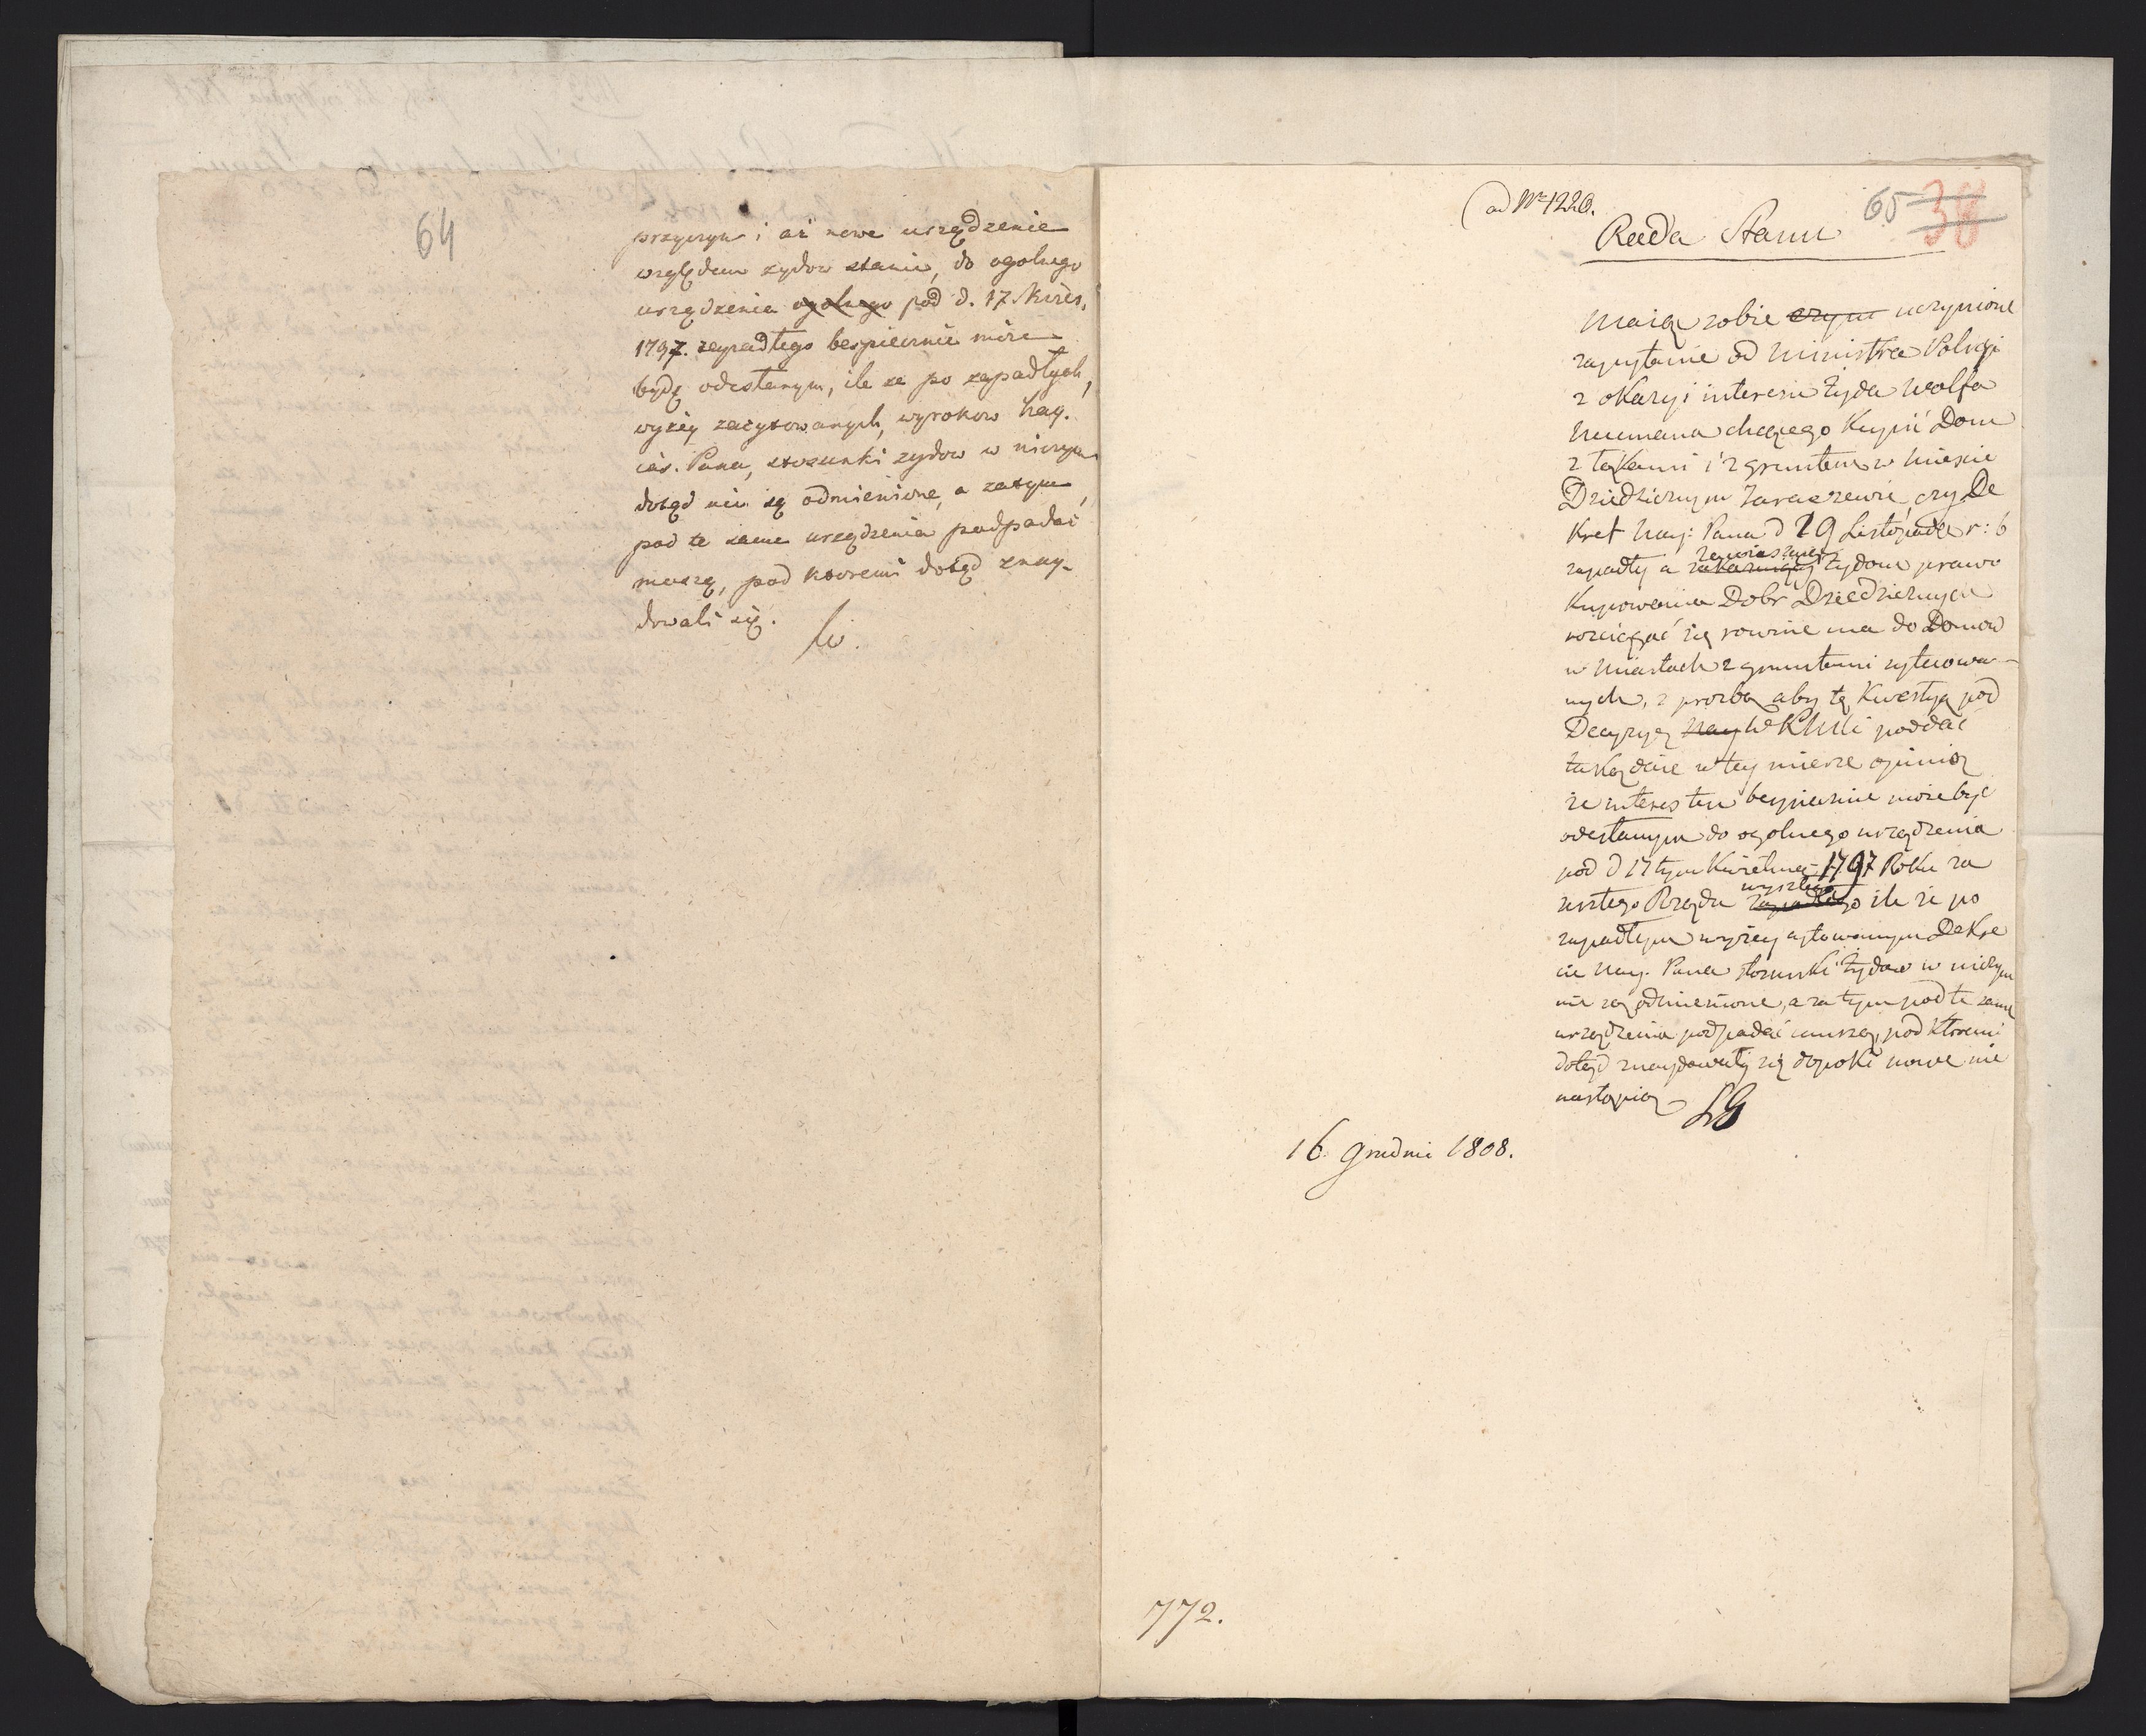 64
przyczyn i aż nowe urządzenie
względem żydow stanie, do ogolnego
urządzenia ogolnego pod d. 17. Kwiet.
1797. zapadłego bespiecznie może
bydź odesłanym, ile że po zapadłych,
wyżey zacytowanych, wyrokow Nay.
iaś. Pana, stosunki zydow w niczym
dotąd nie są odmienione, a zatym,
pod te same urządzenia podpadać
muszą, pod ktoremi dotąd znay-
dowali się.
ad Nr 1220.
65 38
Rada Stanu
Maiąc sobie uczynione
zapytanie od Ministra Policyi
z okazyi interesu Żyda Wolfa
Neumana chcącego kupić Dom
z łąkami i z gruntem w Mieście
Dziedzicznym Jaraczewie, czy De
kret Nay: Pana d 19 Listopada r: b
zapadły a zawieszaiący żydom prawo
kupowania Dobr Dziedzicznych
rozciągać się rownie ma do Domow
w Miastach z gruntami sytuowa-
nych, z prozbą aby tę kwestyą pod
Decyzyą Nay WKMci poddać
taką daie w tey mierze opinią
że interes ten bespiecznie może być
odesłanym do ogolnego urządzenia
pod d 17tym Kwietnia 1797 Roku za
zeszłego Rządu wyszłego ile że po
zapadłym wyżey cytowanym Dekre
cie Nay. Pana stosunki żydow w niczym
nie są odmienione, a za tym pod te same
urządzenia podpadać muszą, pod ktoremi
dotąd znaydowały się dopoki nowe nie
nastąpią
LG
16. Grudnia 1808.
772.